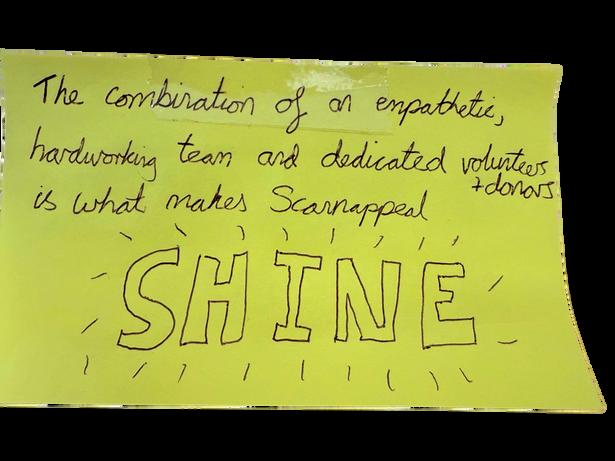 The combination of an empathetic,
hardworking team and dedicated volunteers
+ donors
is what makes Scarnappeal
SHINE